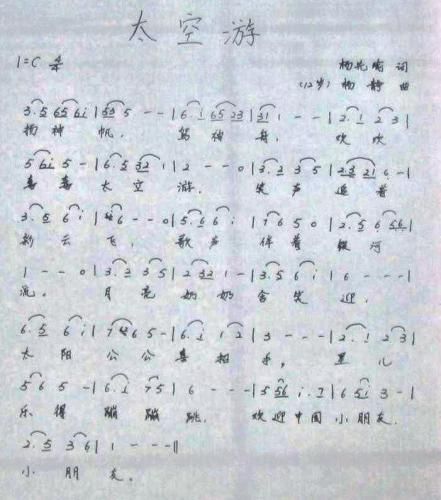 太空游
1=C 4/4 杨兆南 词
(12岁) 杨静 曲
3.5 65 6i | 53 5 - - | 6.1 65 23 | 31 1 - - | 2.1 2 3 |
扬神帆, 驾神舟, 欢欢
5 6i 5 - | 6.5 32 1 | 2 - - 0 | 3.2 3 5 | 2.3 21 6 - |
喜喜太空游. 笑声追着
3.5 6 i | 6 - - 0 | 5.6 6 i | 7 6 5 0 | 2.5 6 56 |
彩云飞, 歌声伴着银河
1 - - 0 | 3.2 3 5 | 2 32 1 - | 3.5 6 i | 6 - - - |
流. 月亮奶奶含笑迎,
6.5 6 i | 7 6 5 - | 6.i 1 2 | 3 - - - | 2.1 2 3 |
太阳公公喜招手, 星儿
5 6 5 - | 6.i 7 5 | 6 - - - | 5 56 i.7 | 6 5i 3 - |
乐得蹦蹦跳, 欢迎中国小朋友.
2.5 3 6 | 1 - - - ||
小朋友.